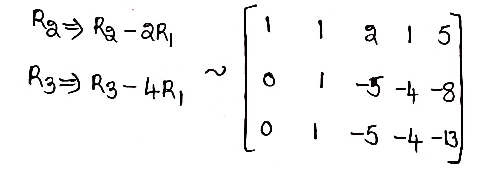 R₂ ⇒ R₂ - 2R₁
R₃ ⇒ R₃ - 4R₁ ~
1 1 2 1 5
0 1 -5 -4 -8
0 1 -5 -4 -13